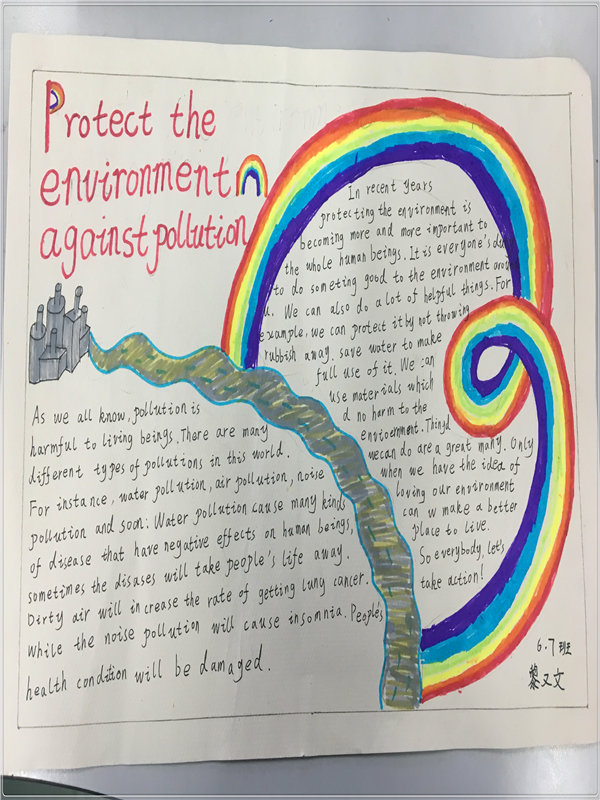 Protect the
environment
against pollution
In recent years
protecting the environment is
becoming more and more important to
the whole human beings. It is everyone's
to do someting good to the environment
We can also do a lot of helpful things. For
example, we can protect it by not throwing
rubbish away. save water to make
full use of it. We can
use materials which
d no harm to the
envioernment. Thingd
we can do are a great many. Only
when we have the idea of
loving our environment
can w make a better
place to live.
So everybody, let's
take action!
As we all know, pollution is
harmful to living beings. There are many
different types of pollutions in this world.
For instance, water pollution, air pollution, noise
pollution and soon. Water pollution cause many kinds
of disease that have negative effects on human beings,
sometimes the disases will take people's life away.
Dirty air will increase the rate of getting lung cancer.
While the noise pollution will cause insomnia. People's
health condition will be damaged.
6.7班
黎又文